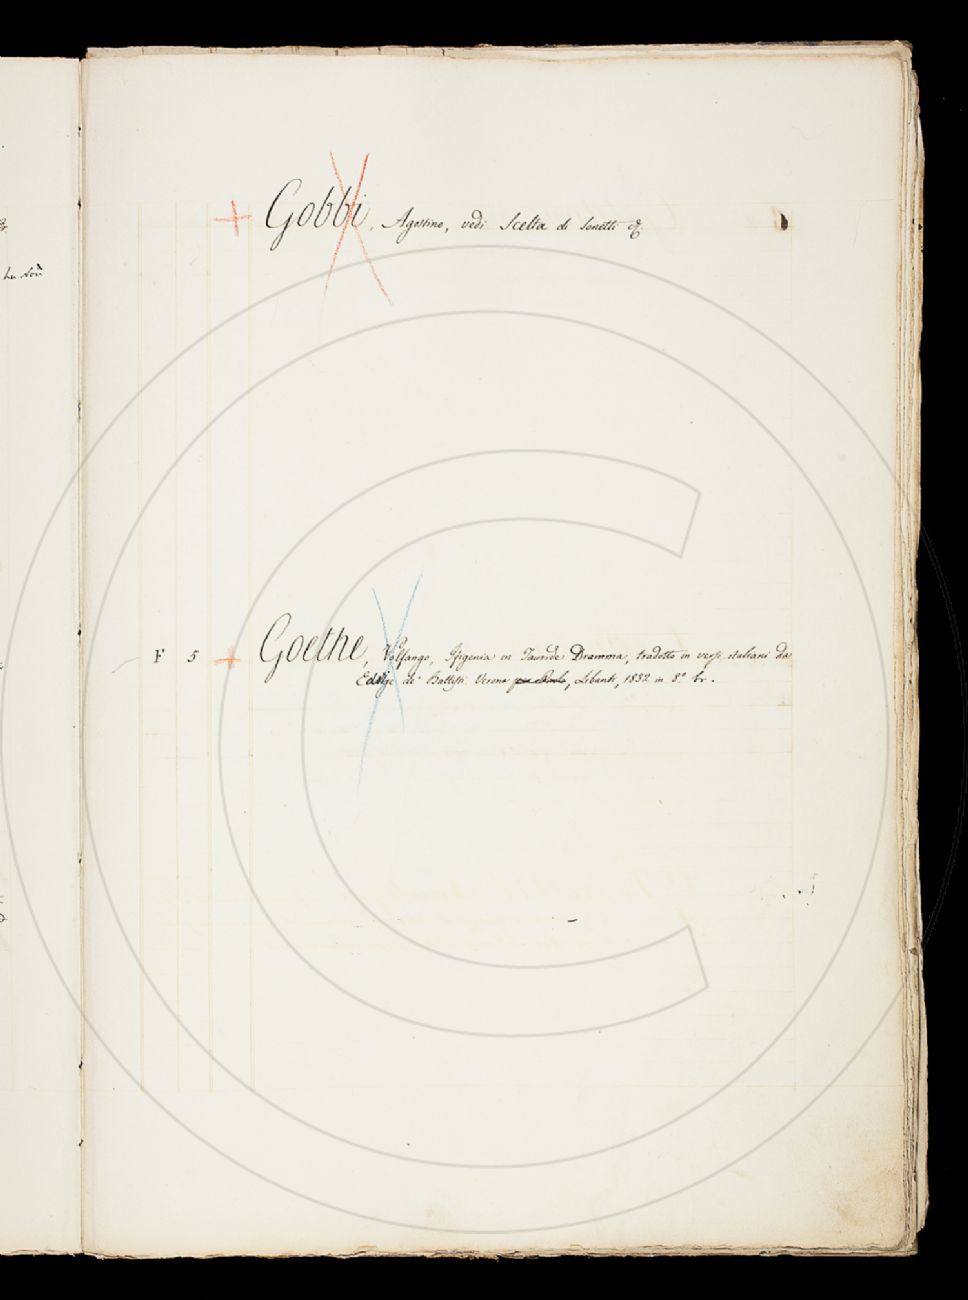 Gobbi, Agostino, vedi Scelta di Sonetti &c.
F 5 Goethe, Volfango, Ifigenia in Tauride Dramma, tradotto in versi italiani da
Edvige de' Battisti. Verona, Libanti, 1832 in 8.° br.